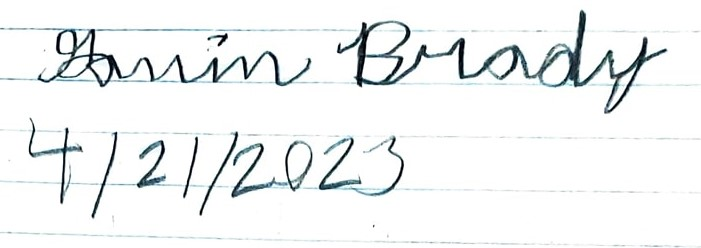 Gavin Brady
4/21/2023